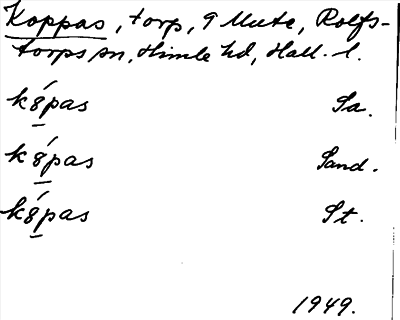 Koppas, torp, 9 Mute, Rolfs-
torps sn, Himle hd, Hall. l.
k8́pas Sa.
k8́pas Sand.
k8́pas St.
1949.